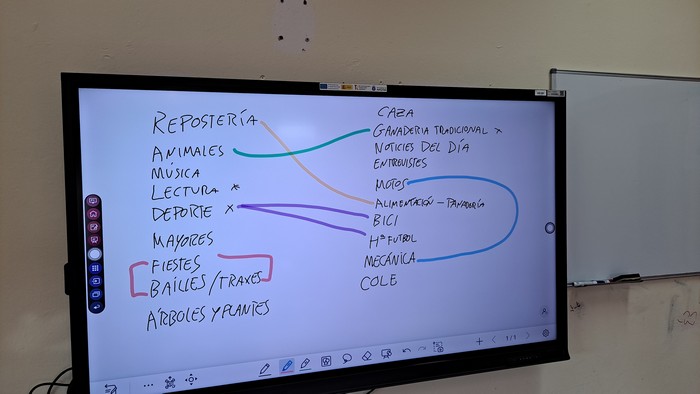 REPOSTERÍA
ANIMALES
MÚSICA
LECTURA x
DEPORTE x
MAYORES
FIESTES
BAILLES/TRAXES
ÁRBOLES Y PLANTES
CAZA
GANADERIA TRADICIONAL x
NOTICIES DEL DÍA
ENTREVISTES
MOTOS
ALIMENTACIÓN - PANADERÍA
BICI
Hª FUTBOL
MECÁNICA
COLE
1/1